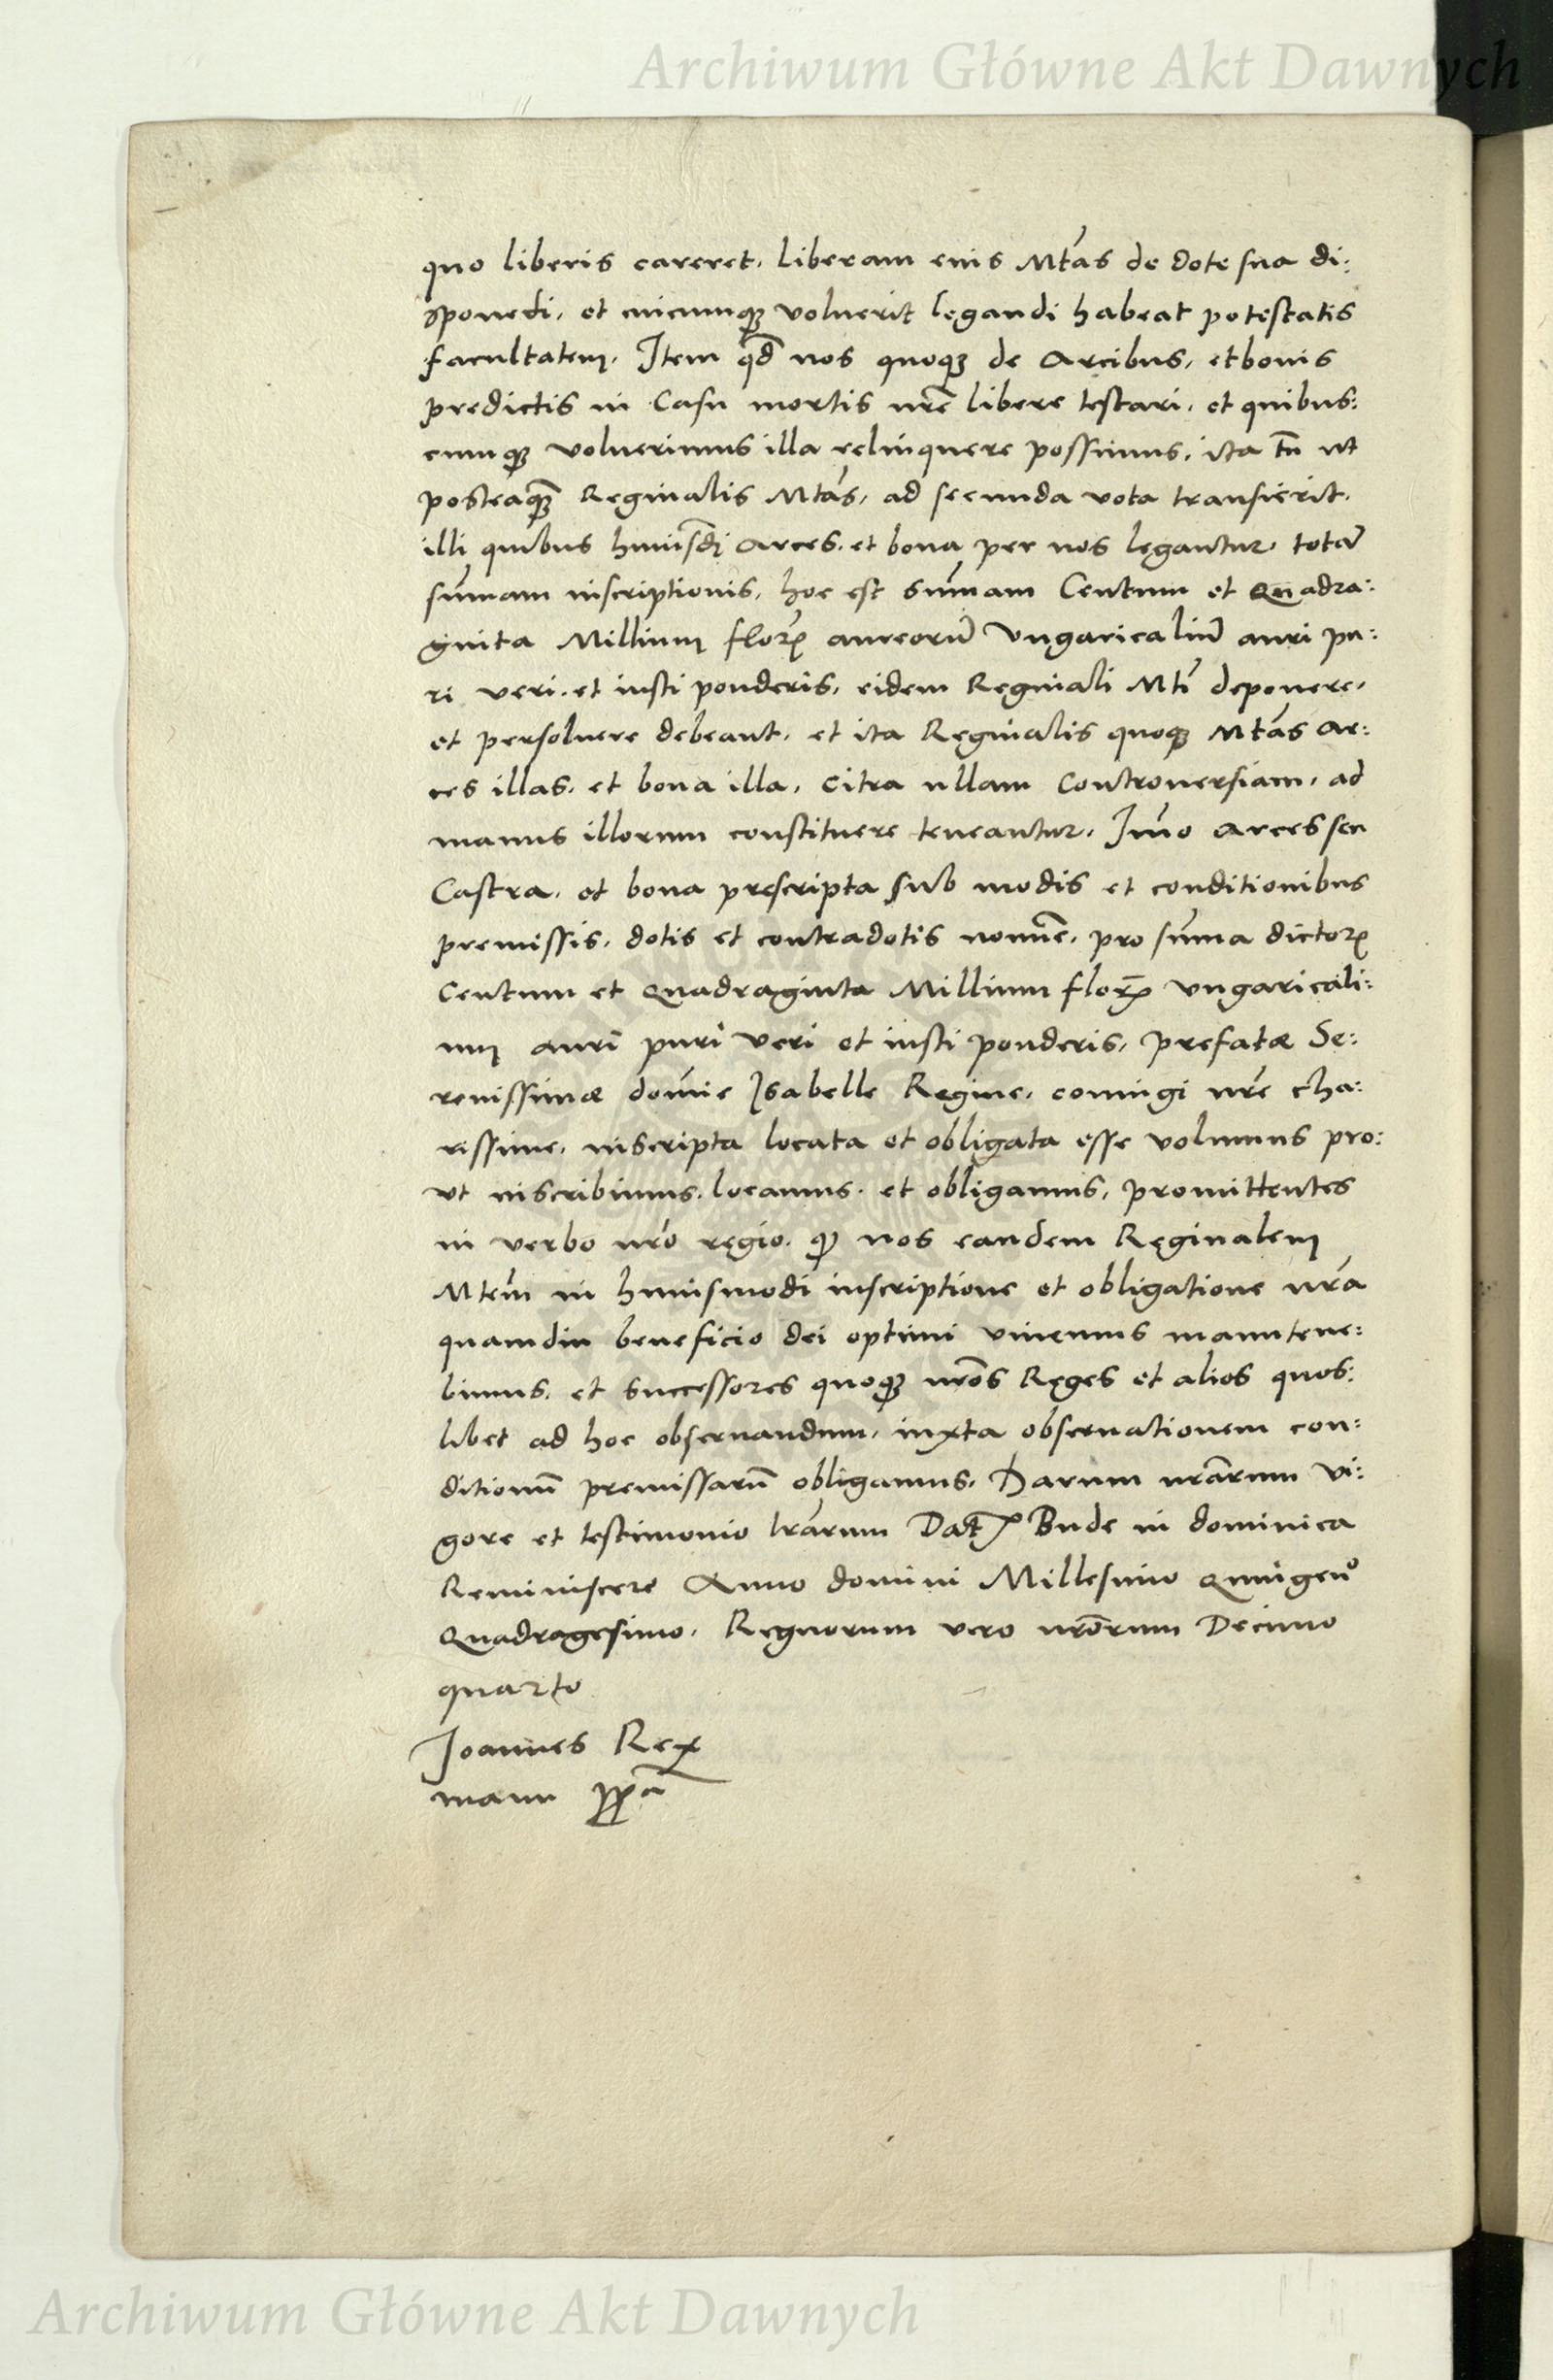 Archiwum Główne Akt Dawnych
quo liberis careret, liberam eius Mtas de dote sua di:
sponēdi, et cuicumq₃ voluerit legandi habeat potestatis
facultatem. Item qd̄ nos quoq₃ de Arcibus, et bonis
predictis in Casu mortis nrē libere testari, et quibus:
cumq₃ voluerimus illa relinquere possimus, ita tn̄ ut
posteaq₃̄ Reginalis Mtās, ad secunda vota transierit,
illi quibus huiusd̄i Arces, et bona per nos legantur, totā
sūmam inscriptionis, hoc est sūmam Centum et Quadra:
ginta Millium florꝝ aureorū Vngaricaliū auri pu:
ri veri, et iusti ponderis, eidem Reginali Mti deponere,
et persoluere debeant, et ita Reginalis quoq₃ Mtās Ar:
ces illas, et bona illa, citra ullam Controuersiam, ad
manus illorum constituere teneantur, Imō Arces seu
Castra, et bona prescripta sub modis et conditionibus
premissis, dotis et contradotis nomīe, pro sūma dictorꝝ
Centum et Quadraginta Millium florꝝ Vngaricali:
um auri puri veri et iusti ponderis, prefatæ Se:
renissimæ domīe Isabelle Regine, coniugi nrē cha:
rissime, inscripta locata et obligata esse volumus pro:
ut inscribimus, locamus, et obligamus, promittentes
in verbo nrō regio, qȝ nos eandem Reginalem
Mtem̄ in huiusmodi inscriptione et obligatione nrā
quamdiu beneficio dei optimi viuemus manutene:
bimus, et successores quoq₃ nrōs Reges et alios quos:
libet ad hoc obseruandum, iuxta obseruationem con:
ditionū premissarū obligamus, Harum nrārum vi:
gore et testimonio lrārum Datꝝ Bude in dominica
Reminiscere Anno domini Millesimo Quingen̊
Quadragesimo, Regnorum vero nrōrum Decimo
quarto
Joannes Rex
manu ppā
Archiwum Główne Akt Dawnych